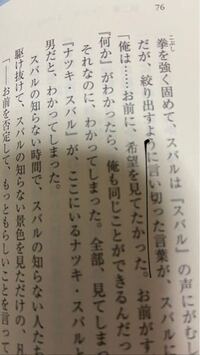 76
拳を強く固めて、スバルは『スバル』の声にがむし
だが、絞り出すように言い切った言葉が、スバルに
「俺は……お前に、希望を見てたかった。お前がす
『何か』がわかったら、俺も同じことができるんだっ
それなのに、わかってしまった。全部、見てしまっ
『ナツキ・スバル』が、ここにいるナツキ・スバル
男だと、わかってしまった。
スバルの知らない時間で、スバルの知らない人たち
駆け抜けて、スバルの知らない景色を見ただけの、
「——お前を否定して、もっともらしいことを言って
こぶし